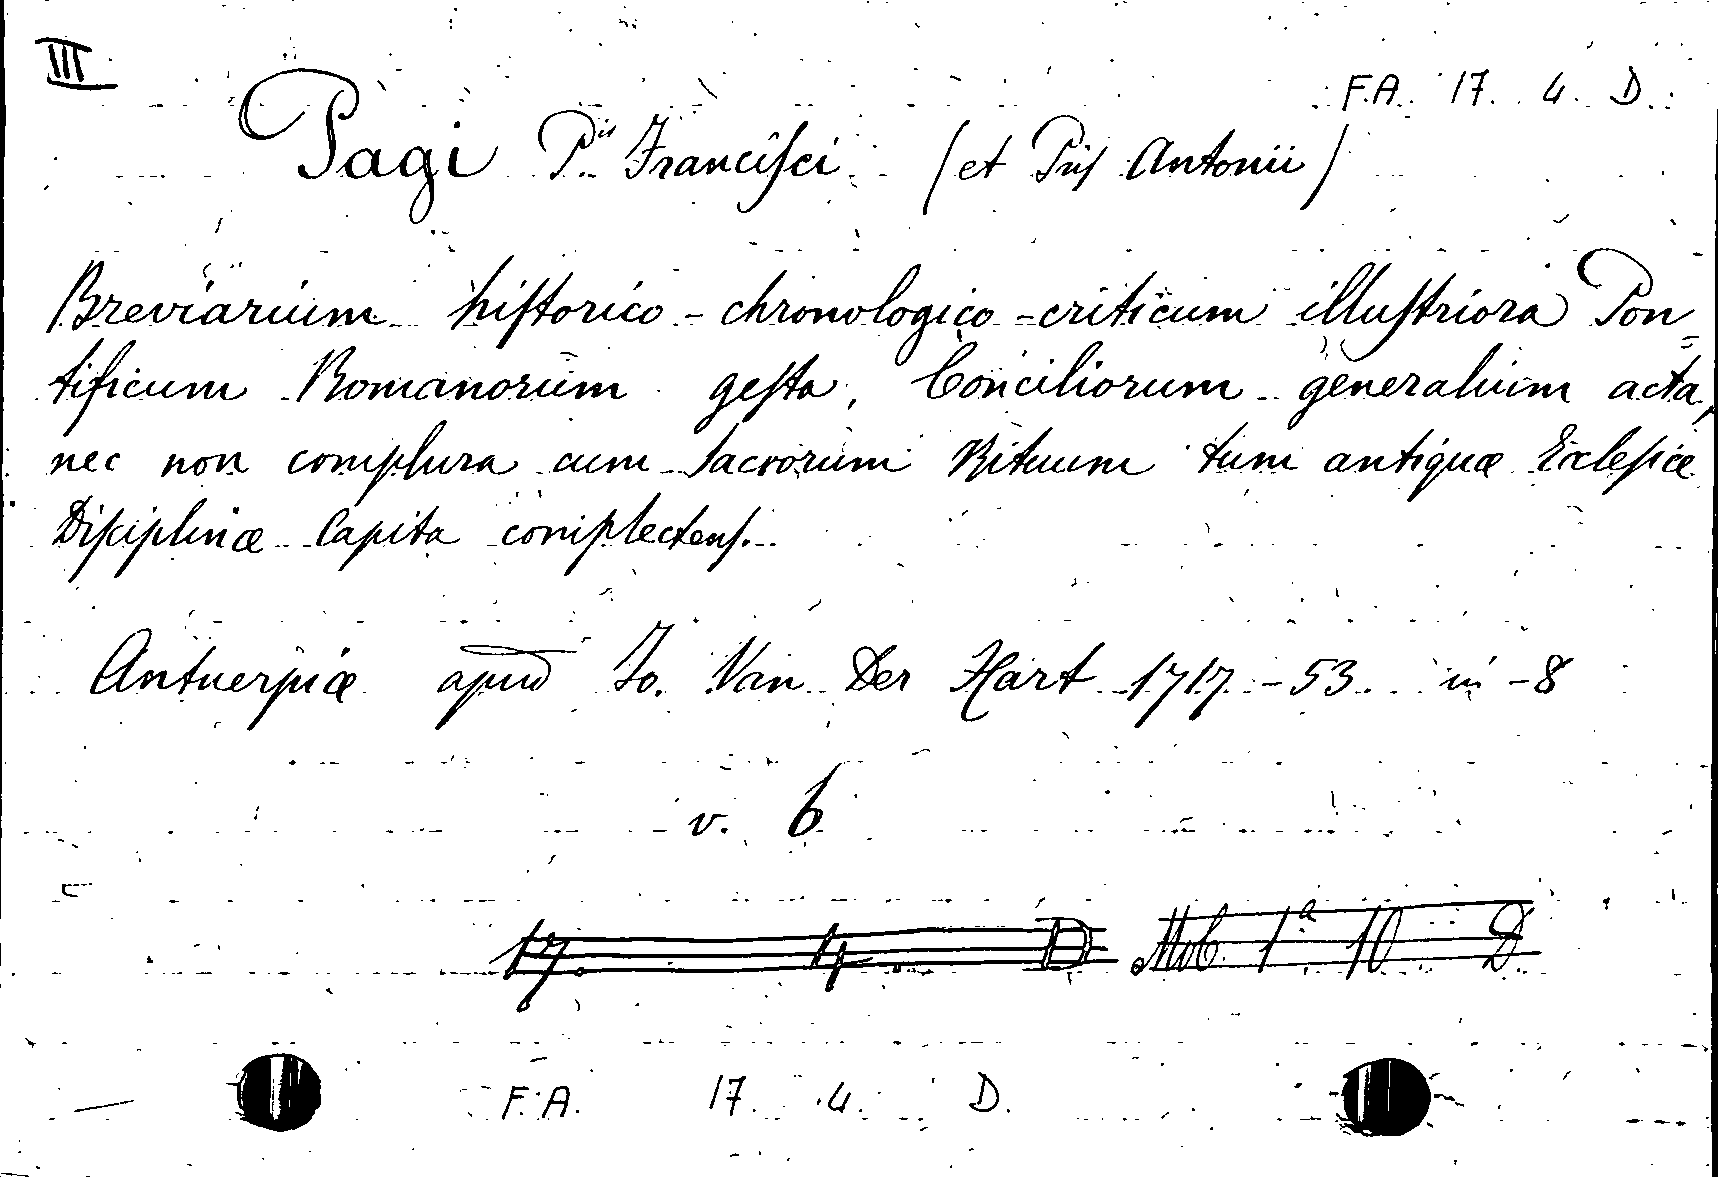 III
F.A. 17. 4. D.
Pagi P.is Franciſci (et Pris Antonii)
Breviarium hiſtorico-chronologico-criticum illuſtriora Pon=
tificum Romanorum geſta, Conciliorum generalium acta,
nec non complura cum Sacrorum Rituum tum antiquæ Eccleſiæ
Diſciplinæ Capita complectens.
Antuerpiæ apud Jo. Van Der Hart 1717-53. in-8
v. 6
17. 4. D Mob. 1.a 10 D.
F.A. 17. 4. D.